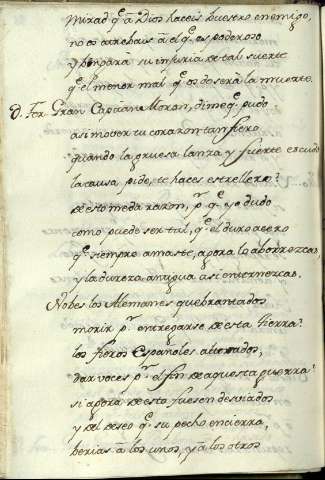 mirad q.^e à Dios haceis buestro enemigo,
no os atrebais à el q.^e es poderoso
y bengara su injuria de tal suerte
q.^e el menor mal q.^e os dè serà la muerte.
D. Fer. Gran Capitan Moran, dime q.^e pudo
asi mover tu corazon tan fiero
quando la gruesa lanza y fuerte escudo
la causa pide, te haces estrellero?
de esto me da razon, p.^r q.^e yo dudo
como puede ser tal, q.^e el duro acero
q.^e siempre amaste, agora lo aborrezcas
y la dureza antigua asi enternezcas.
No bes los Alemanes quebrantados
morir p.^r entregarse de esta tierra?
los fieros Españoles
dar voces p.^r el fin de aquesta guerra?
si agora de esto fuesen desviados
y del deseo q.^e su pecho encierra,
berias à los unos, y à los otros